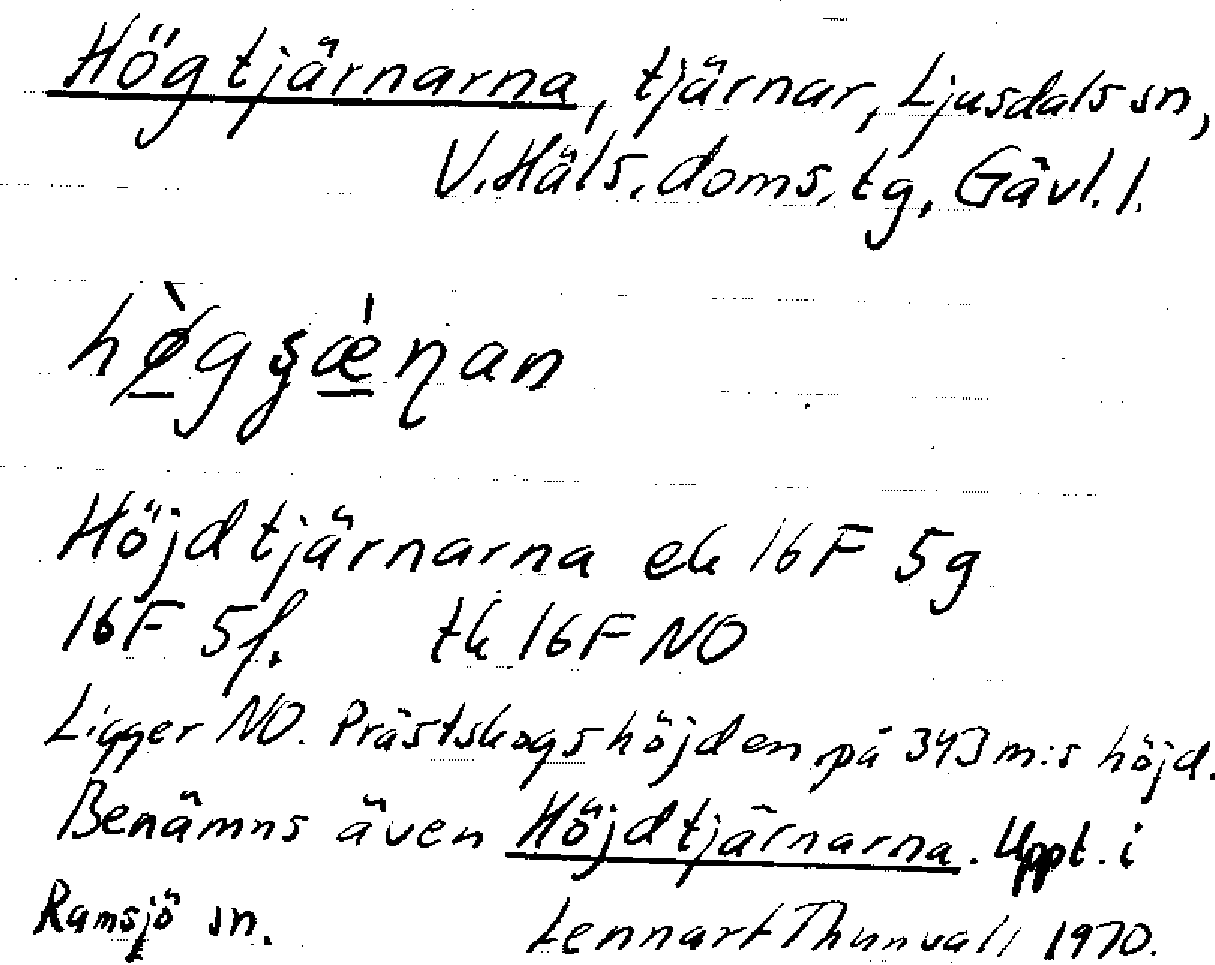 Högtjärnarna, tjärnar, Ljusdals sn,
V. Häls. doms. tg, Gävl. l.
hø̀gʂǽɳan
Höjdtjärnarna ek 16F 5g
16F 5f. tk 16F NO
Ligger NO. Prästskogshöjden på 393 m:s höjd.
Benämns även Höjdtjärnarna. Uppt. i
Ramsjö sn. Lennart Thunvall 1970.